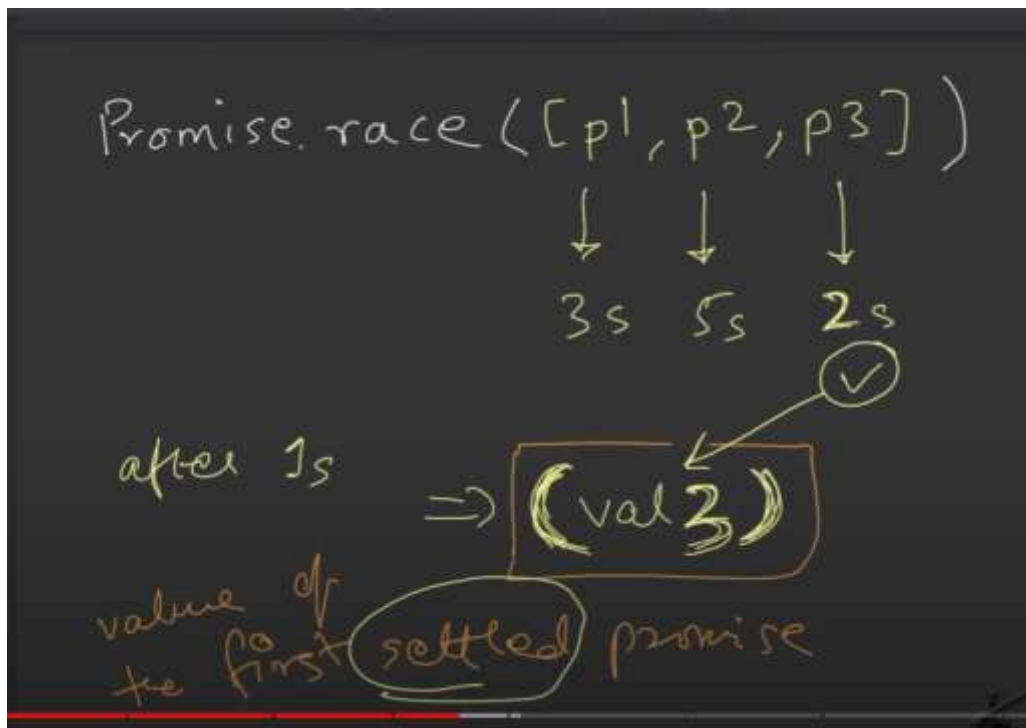 Promise.race([p1, p2, p3])
3s 5s 2s
after 1s
=> (val3)
value of
the first settled promise